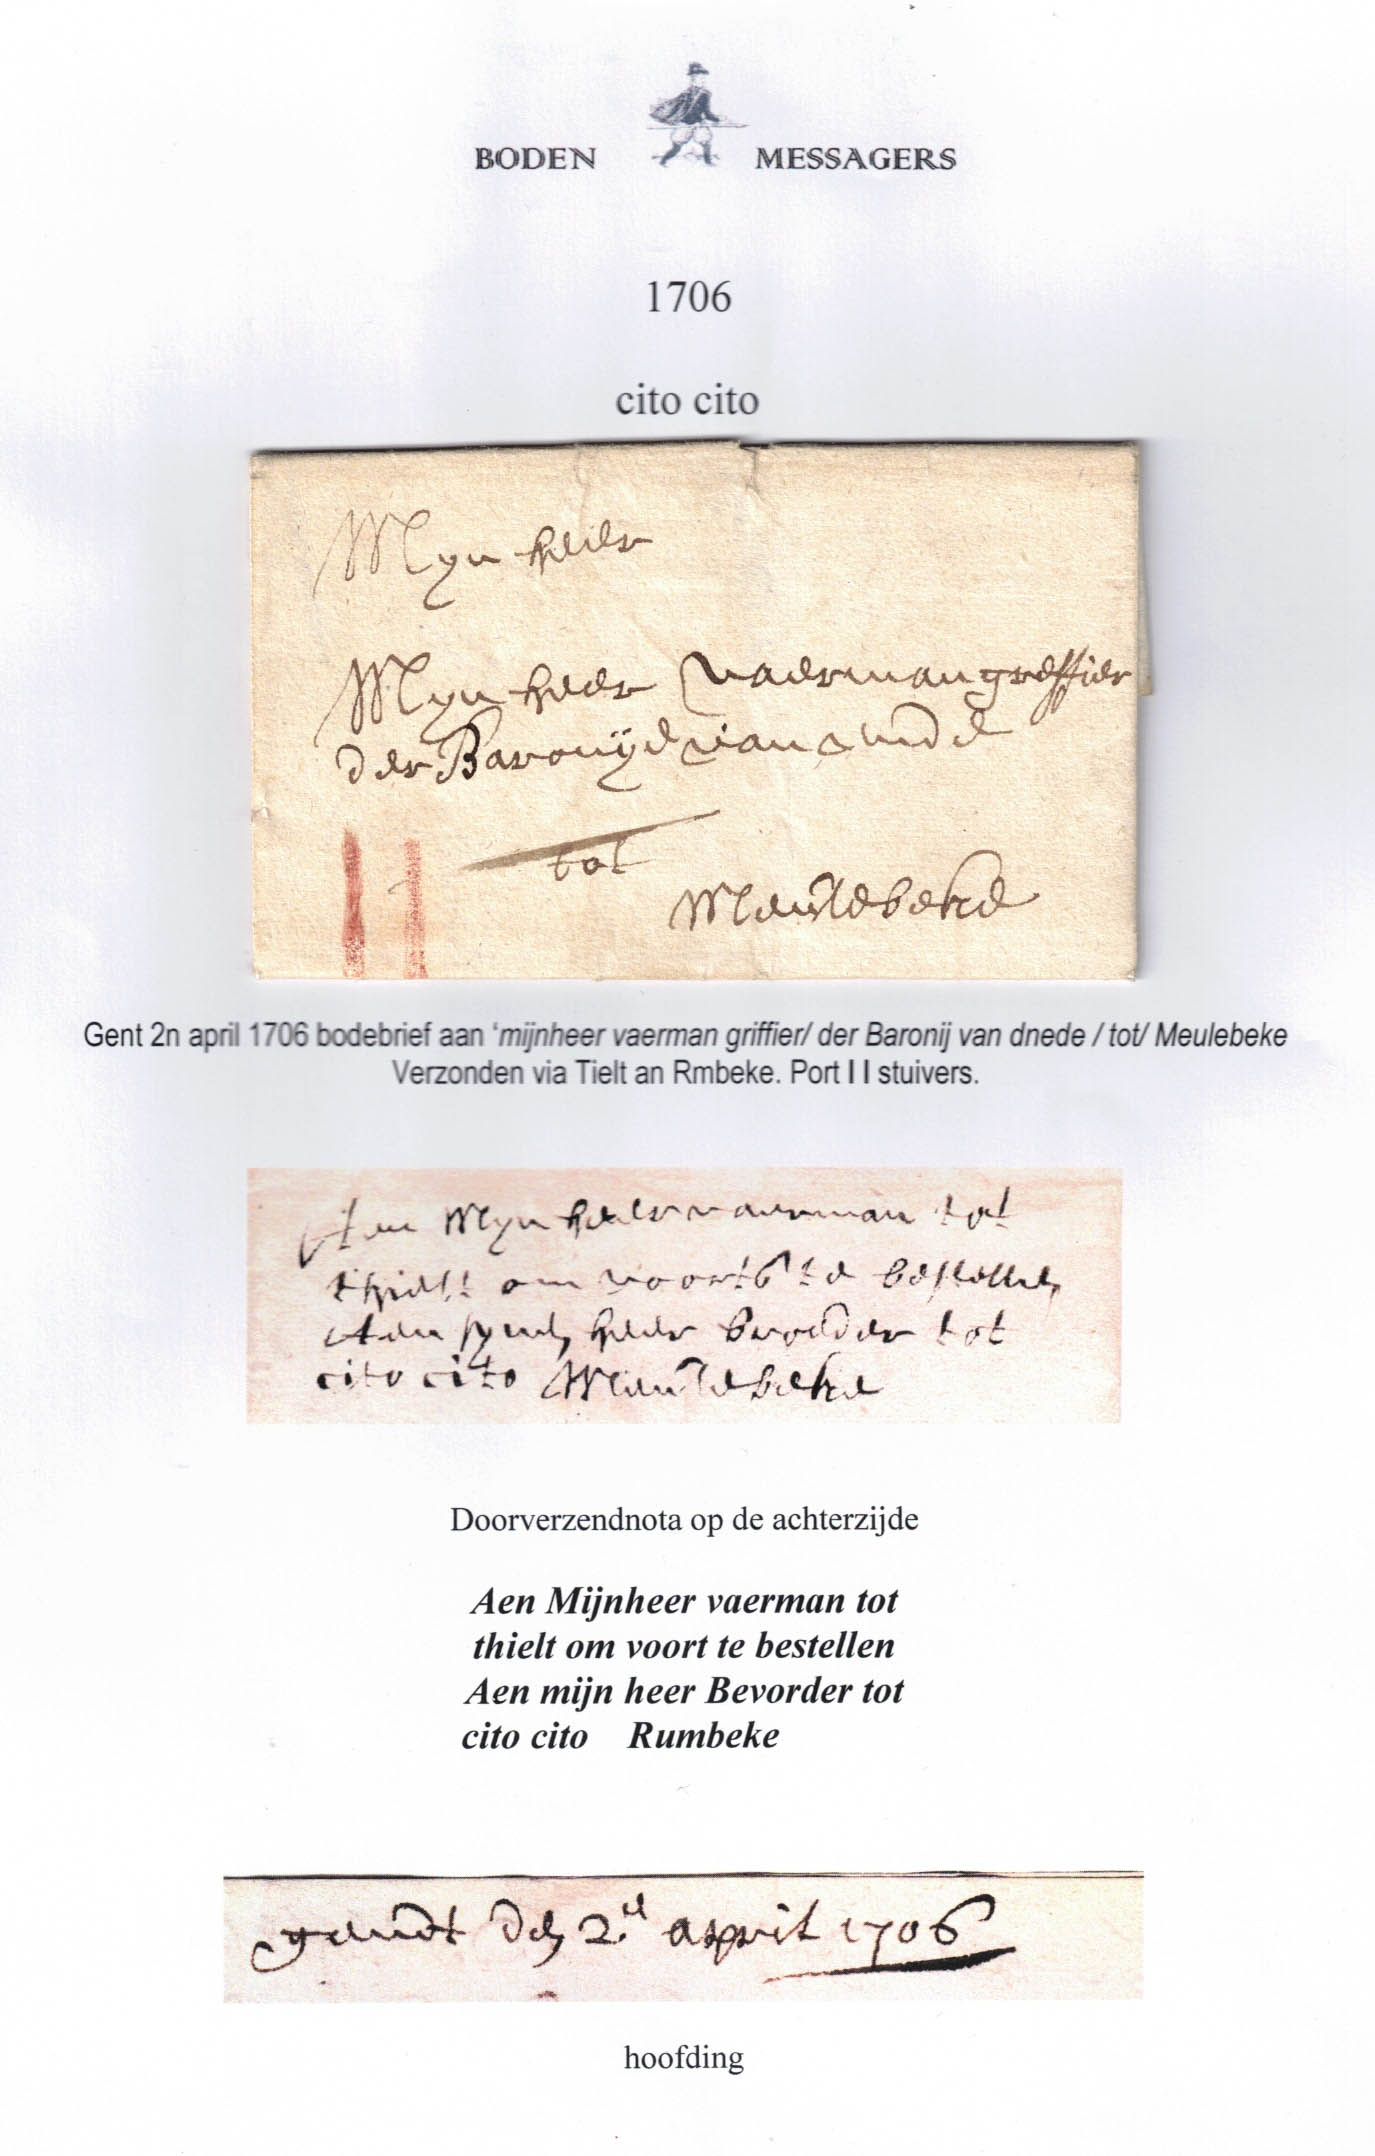 BODEN MESSAGERS
1706
cito cito
Mijn heer
Mijn heer vaerman greffier
der Baronije van
tot
Meulebeke
Gent 2n april 1706 bodebrief aan ‘mijnheer vaerman griffier/ der Baronij van dnede / tot/ Meulebeke
Verzonden via Tielt an Rmbeke. Port I I stuivers.
Aen Mijn heer vaerman tot
thielt om voorts te bestellen
Aen sijnen heer broeder tot
cito cito Meulebeke
Doorverzendnota op de achterzijde
Aen Mijnheer vaerman tot
thielt om voort te bestellen
Aen mijn heer Bevorder tot
cito cito Rumbeke
gendt den 2en april 1706
hoofding